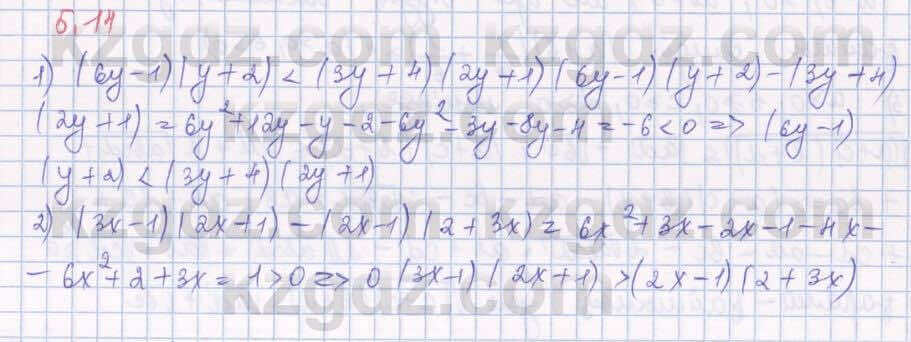 5.14
1) (6y-1)(y+2) < (3y+4)(2y+1) (6y-1)(y+2)-(3y+4)
(2y+1) = 6y²+12y-y-2-6y²-3y-8y-4 = -6<0 => (6y-1)
(y+2) < (3y+4)(2y+1)
2) (3x-1)(2x+1)-(2x-1)(2+3x) = 6x²+3x-2x-1-4x-
-6x²+2+3x = 1>0 => 0 (3x-1)(2x+1) > (2x-1)(2+3x)
kzgdz.com
kzgdz.com
kzgdz.com